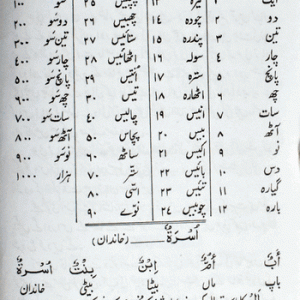 ایک ۱ تیرہ ۱۳ پچیس ۲۵ سو ۱۰۰
دو ۲ چودہ ۱۴ چھبیس ۲۶ دو سو ۲۰۰
تین ۳ پندرہ ۱۵ ستائیس ۲۷ تین سو ۳۰۰
چار ۴ سولہ ۱۶ اٹھائیس ۲۸ چار سو ۴۰۰
پانچ ۵ سترہ ۱۷ انتیس ۲۹ پانچ سو ۵۰۰
چھ ۶ اٹھارہ ۱۸ تیس ۳۰ چھ سو ۶۰۰
سات ۷ انیس ۱۹ چالیس ۴۰ سات سو ۷۰۰
آٹھ ۸ بیس ۲۰ پچاس ۵۰ آٹھ سو ۸۰۰
نو ۹ اکیس ۲۱ ساٹھ ۶۰ نو سو ۹۰۰
دس ۱۰ بائیس ۲۲ ستّر ۷۰ ہزار ۱۰۰۰
گیارہ ۱۱ تئیس ۲۳ اسّی ۸۰
بارہ ۱۲ چوبیس ۲۴ نوّے ۹۰
اُسْرَةٌ (خاندان)
اَبٌ اُمٌّ اِبْنٌ بِنْتٌ اُسْرَةٌ
باپ ماں بیٹا بیٹی خاندان